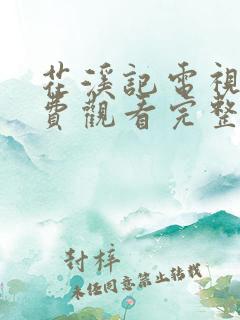 茌溪記電視
費觀看完整
封梓
未经同意禁止转载